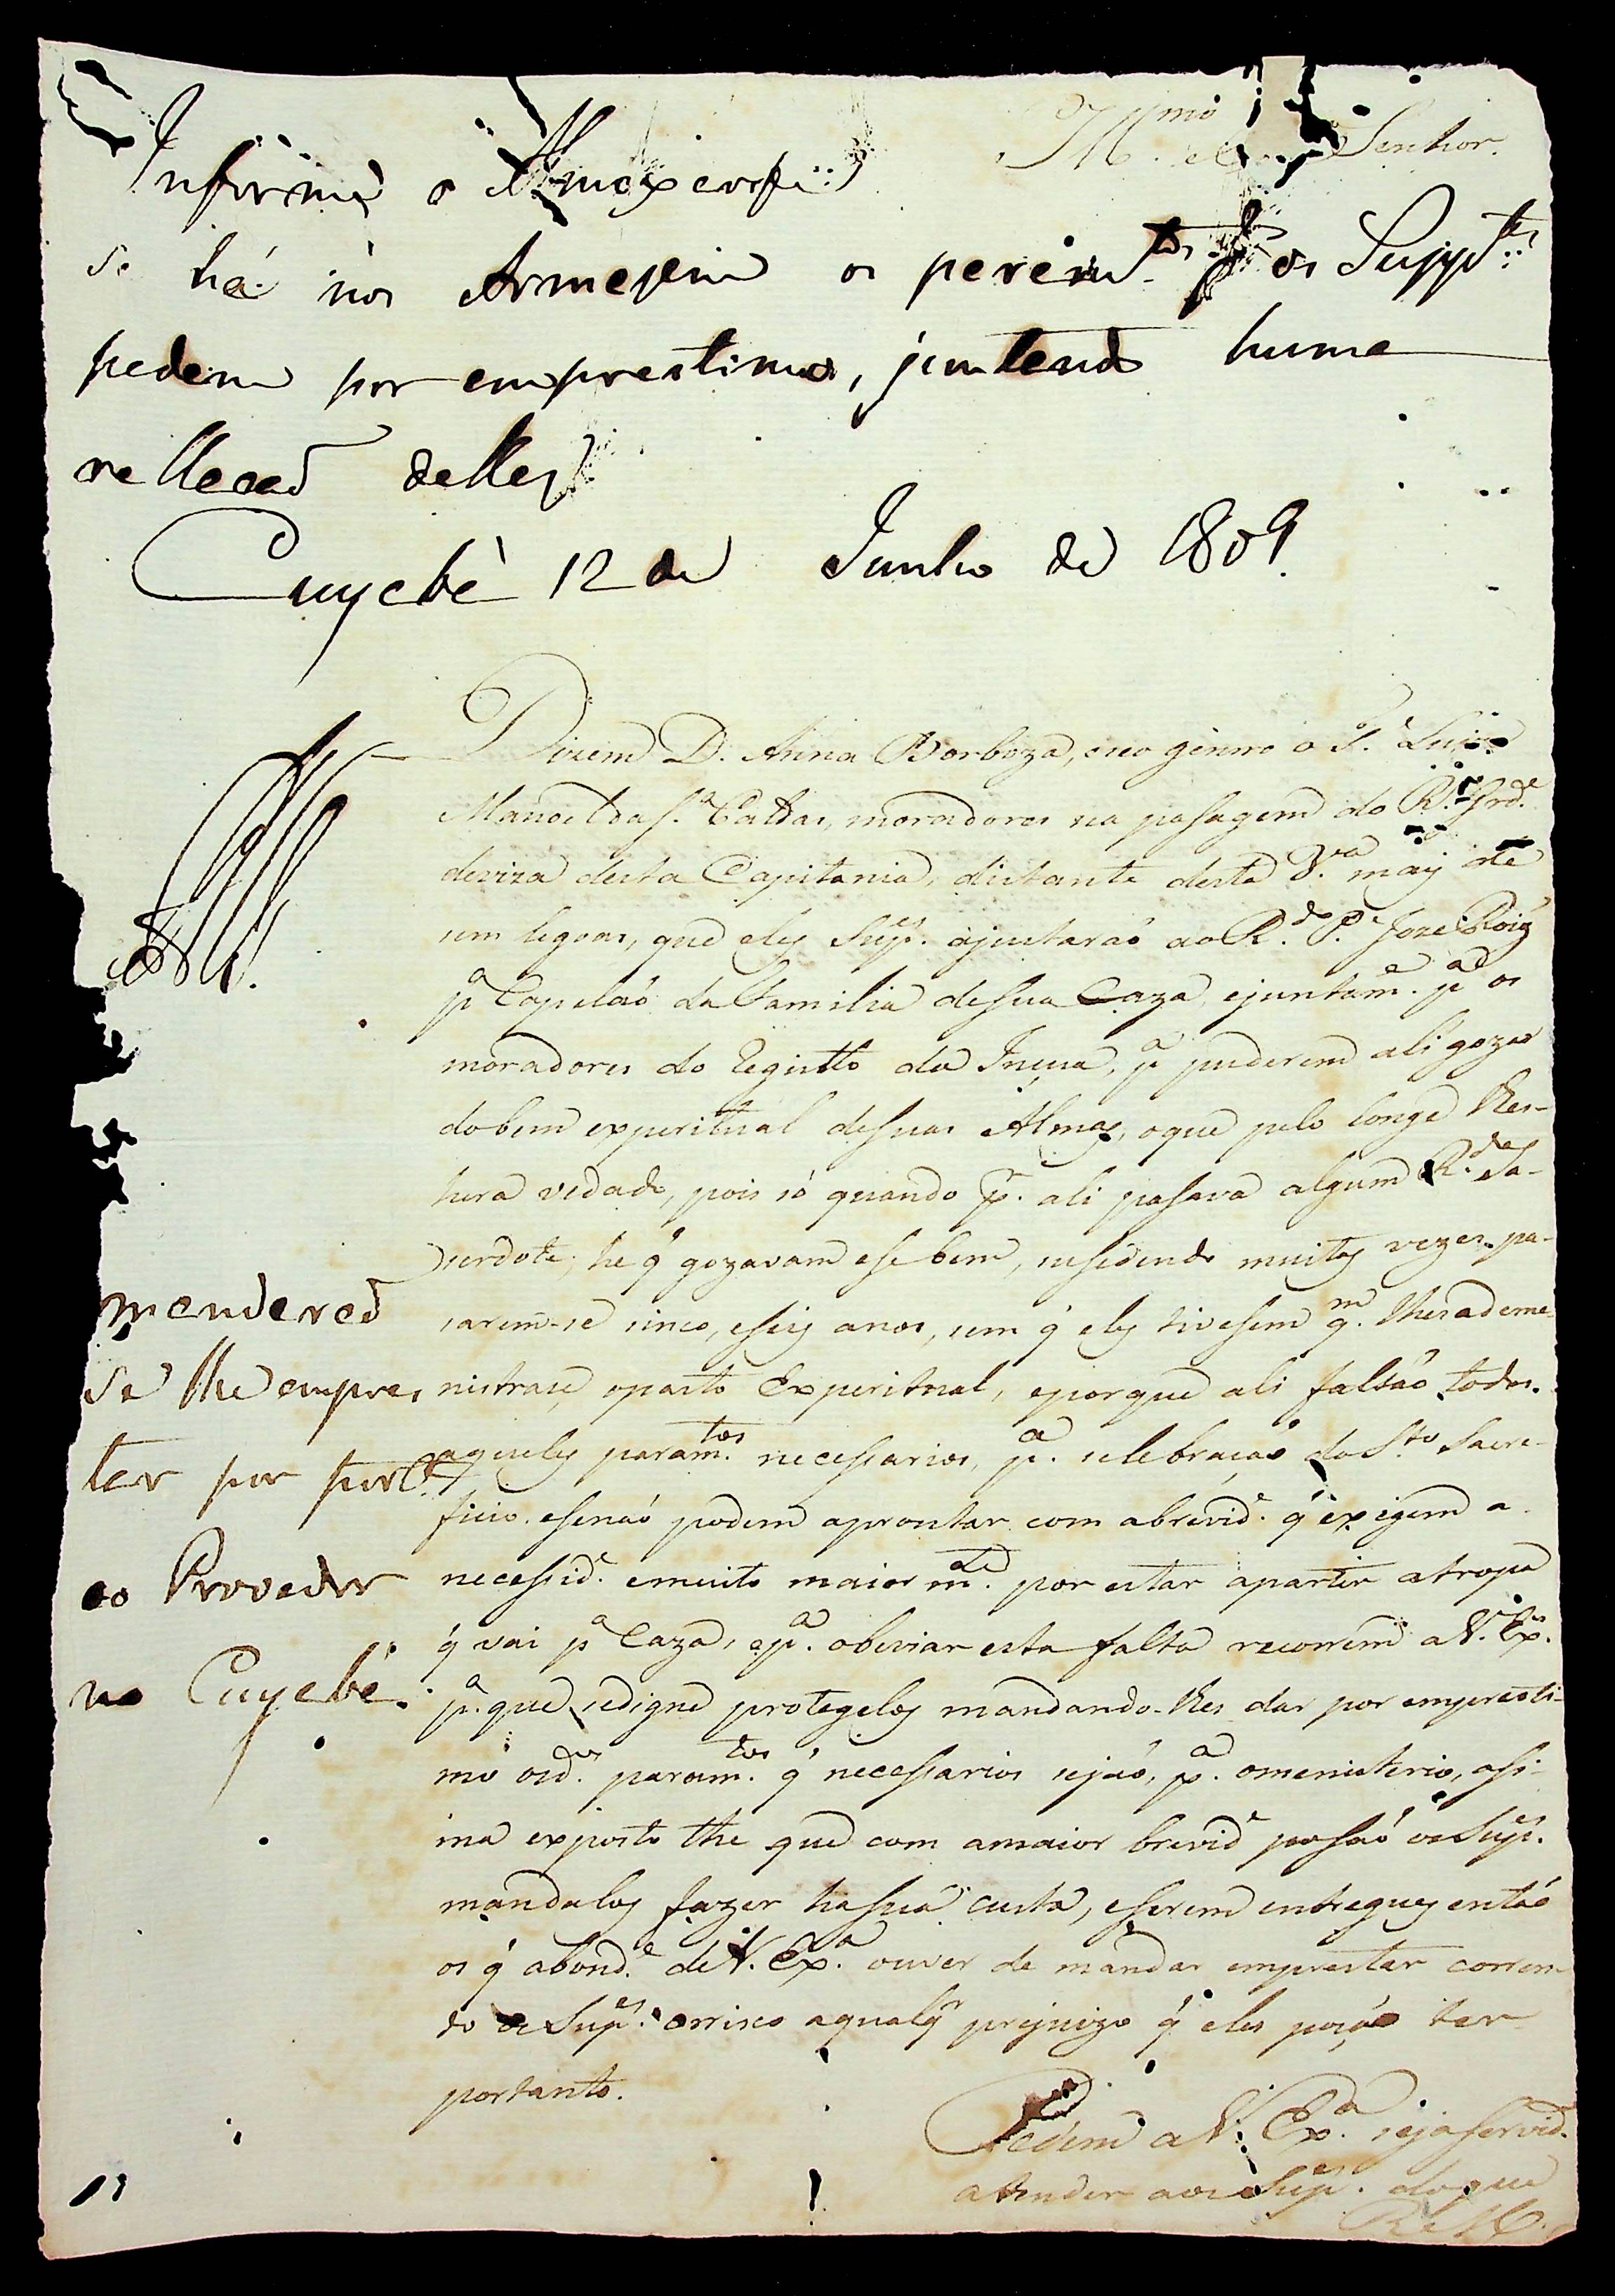 Ill.mo Senhor.
Informe o Almoxerife
se há nos Armazens os peram.tos q̃ os Supp.tes
pedem por emprestimo, juntando huma
rellaçaõ delles
Cuyabá 12 de Junho de 1809.
Dizem D. Anna Borboza, eseo genrro o T.e Luiz
Manoel da S.a Caldas, moradores na pasagem do R.o Grd.e
deviza desta Capitania, distante desta V.a maiz de
sem legoas, que eles Sup.es ajustaraõ ao R.do P.e Joze Roiz
p.a Capelaõ da Familia desua Caza, ejuntam.e p.a os
moradores do Registto da Insua, p.a puderem ali gozar
dobem experitual desuas Almas, oque pelo longe lhes-
hera vedado, pois só quando p.r ali pasava algum R.do Sa-
serdote, he q̃ gozavam ese bem, susedendo muitas vezes pa-
sarem-se sinco, eseis anos, sem q̃ eles tivesem q.m lhes adme-
nistrase, opasto Experitual, eporque ali faltaõ todos.
aqueles param.tos necessarios, p.a selebraçaõ do S.to Sacre-
ficio. esenaõ podem aprontar com abrevid.e q̃ exigem a
necessid.e emuito maior m.te por estar apartir atropa
q̃ vai p.a Caza, ep.a obviar esta falta recorrem a V. Ex.a
p.a que sedigne protegelos mandando-lhes dar por empresti-
mo os d.os param.tos q̃ necessarios sejaõ, p.a omenisterio, asi-
ma exposto the que com amaior brevid.e posaõ os Sup.es
mandalos fazer hasua custa, eserem entregues entaõ
os q̃ abond.e de V. Ex.a ouver de mandar emprestar corren-
do os Sup.es orrisco aqualq.r prejuizo q̃ eles posaõ ter
portanto.
Pedem a V. Ex.a seja servid.o
atender aos Sup.es doque
R. M.
mandaraõ
se lhe empres
ter por port.
ao Provedor
no Cuyabá.